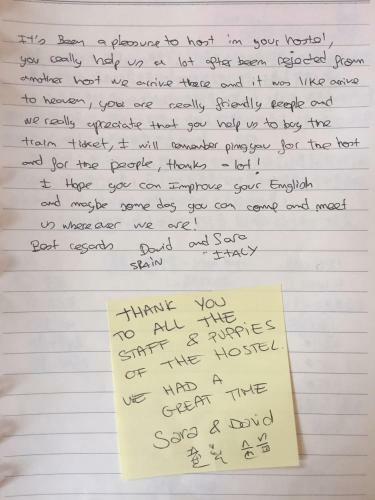 It's Been a pleasure to host in your hostel,
you really help us a lot after been rejected from
another host we arrive there and it was like arrive
to heaven, you are really friendly people and
we really apreciate that you help us to buy the
train ticket, I will remember pingyou for the host
and for the people, thanks a lot!
I Hope you can Improve your English
and maybe some day you can come and meet
us wherever we are!
Best regards David and Sara
SPAIN ITALY
THANK YOU
TO ALL THE
STAFF & PUPPIES
OF THE HOSTEL.
WE HAD A
GREAT TIME
Sara & David